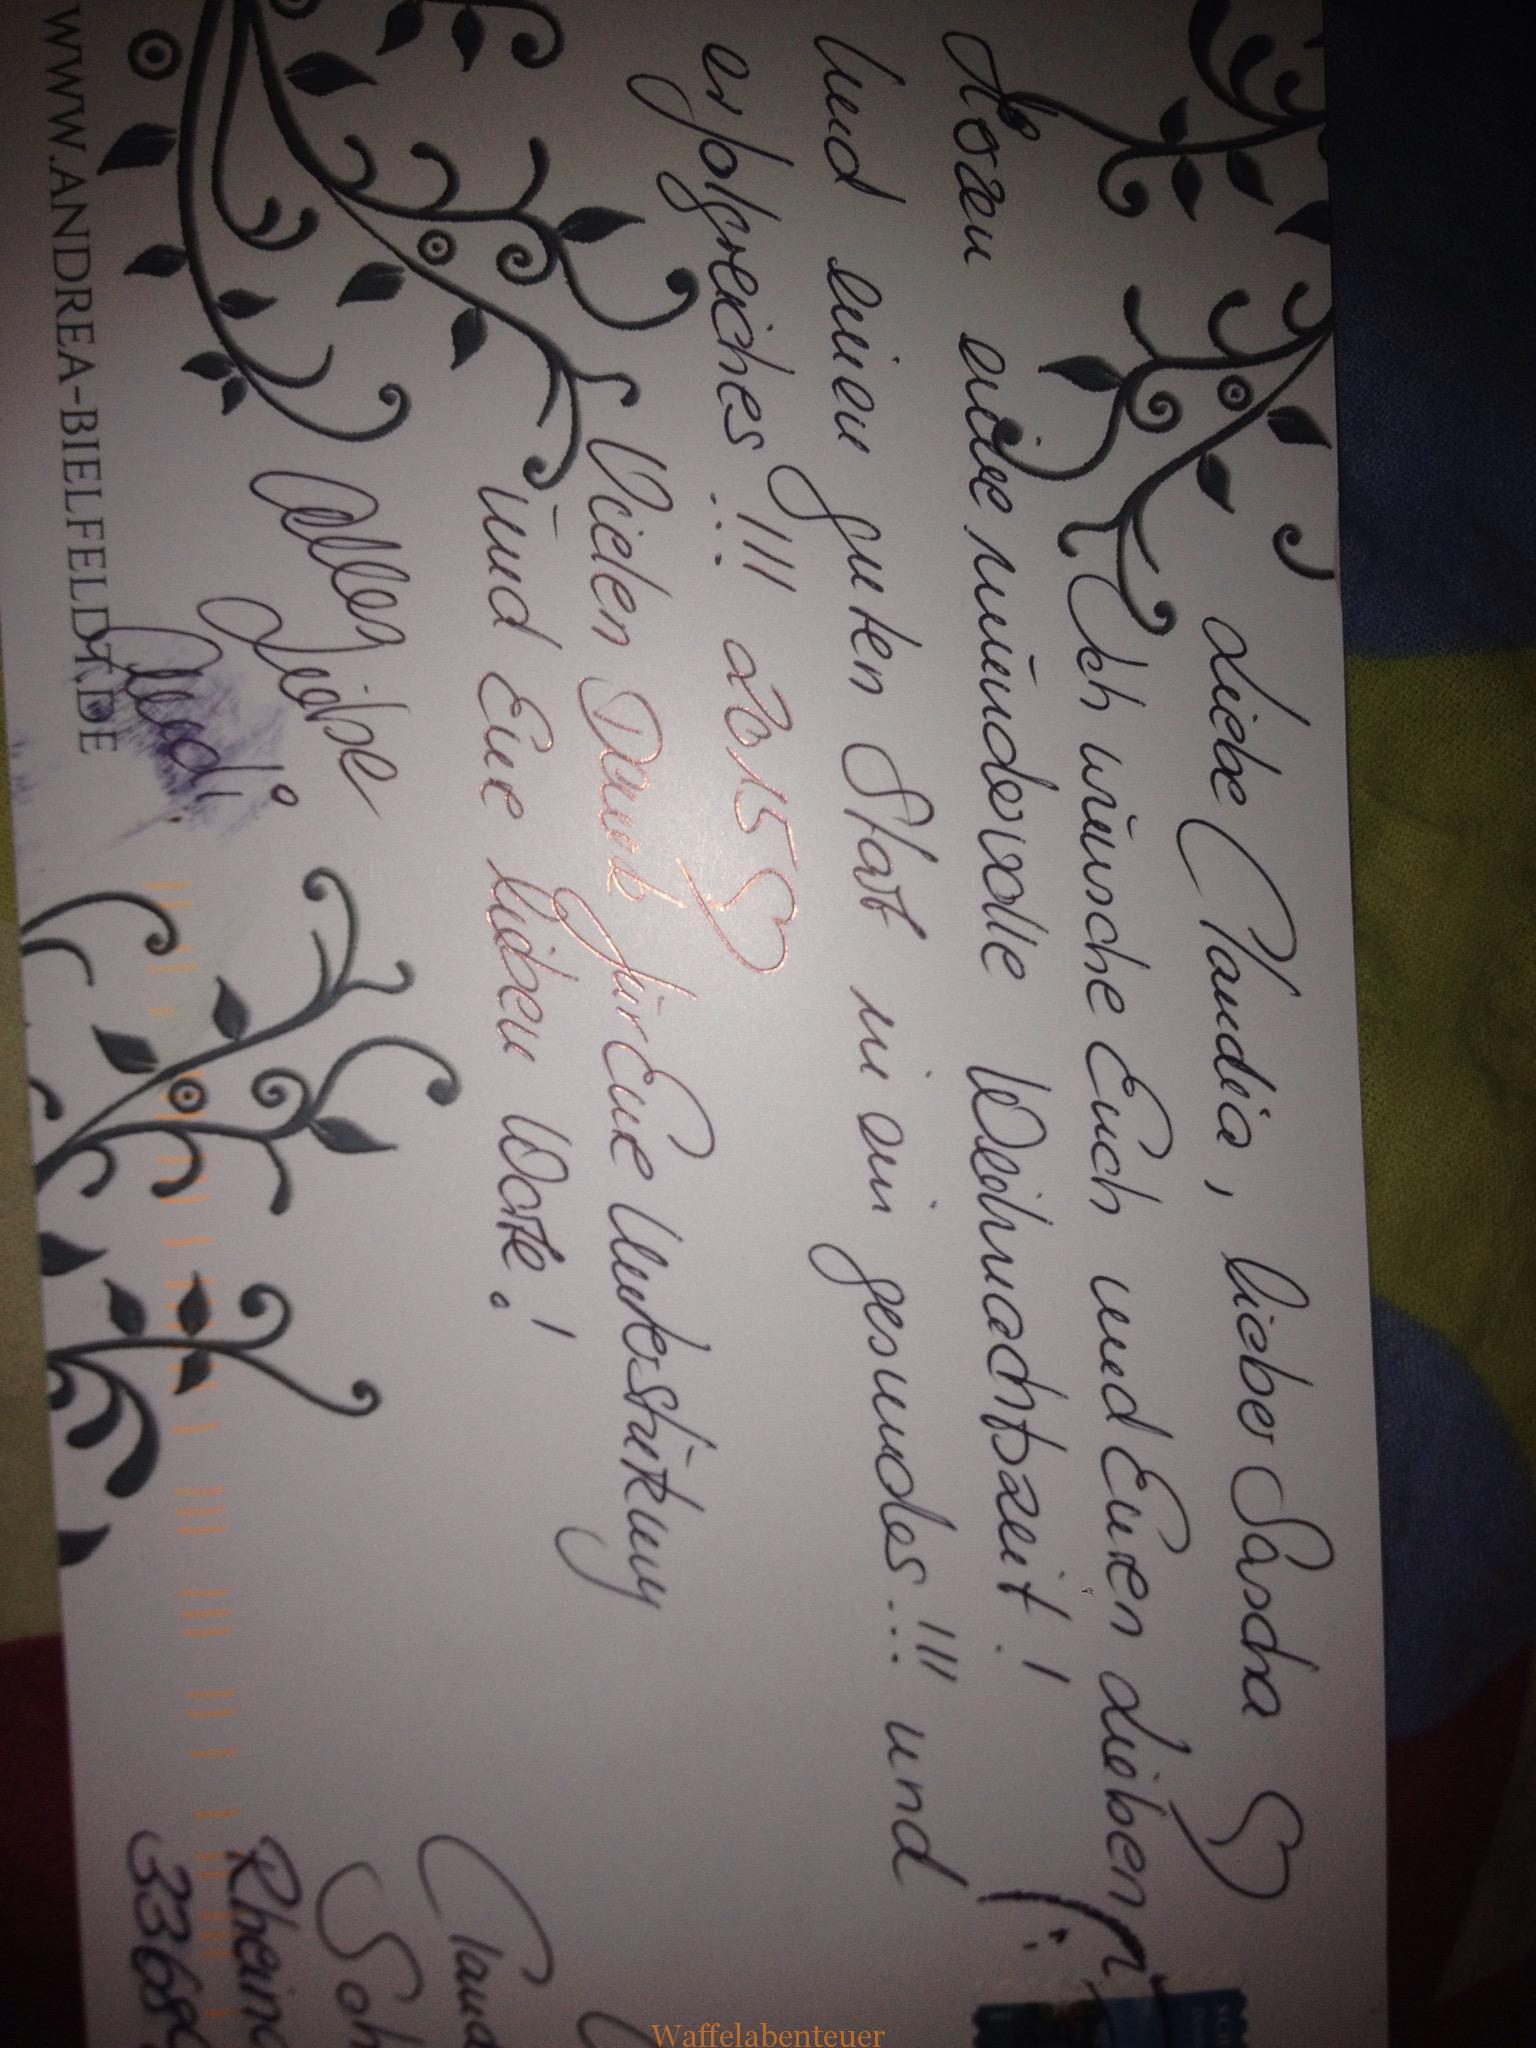 Liebe Claudia, lieber Sascha
Ich wünsche Euch und Euren Lieben
Herzen eine wundervolle Weihnachtszeit!
und einen guten Start in ein gesundes!!! und
erfolgreiches!!! 2015
Vielen Dank für Eure Unterstützung
und Eure lieben Worte!
Alles Liebe
Andi
WWW.ANDREA-BIELFELDT.DE
Clau
Sch
Rhein
3368
Waffelabenteuer